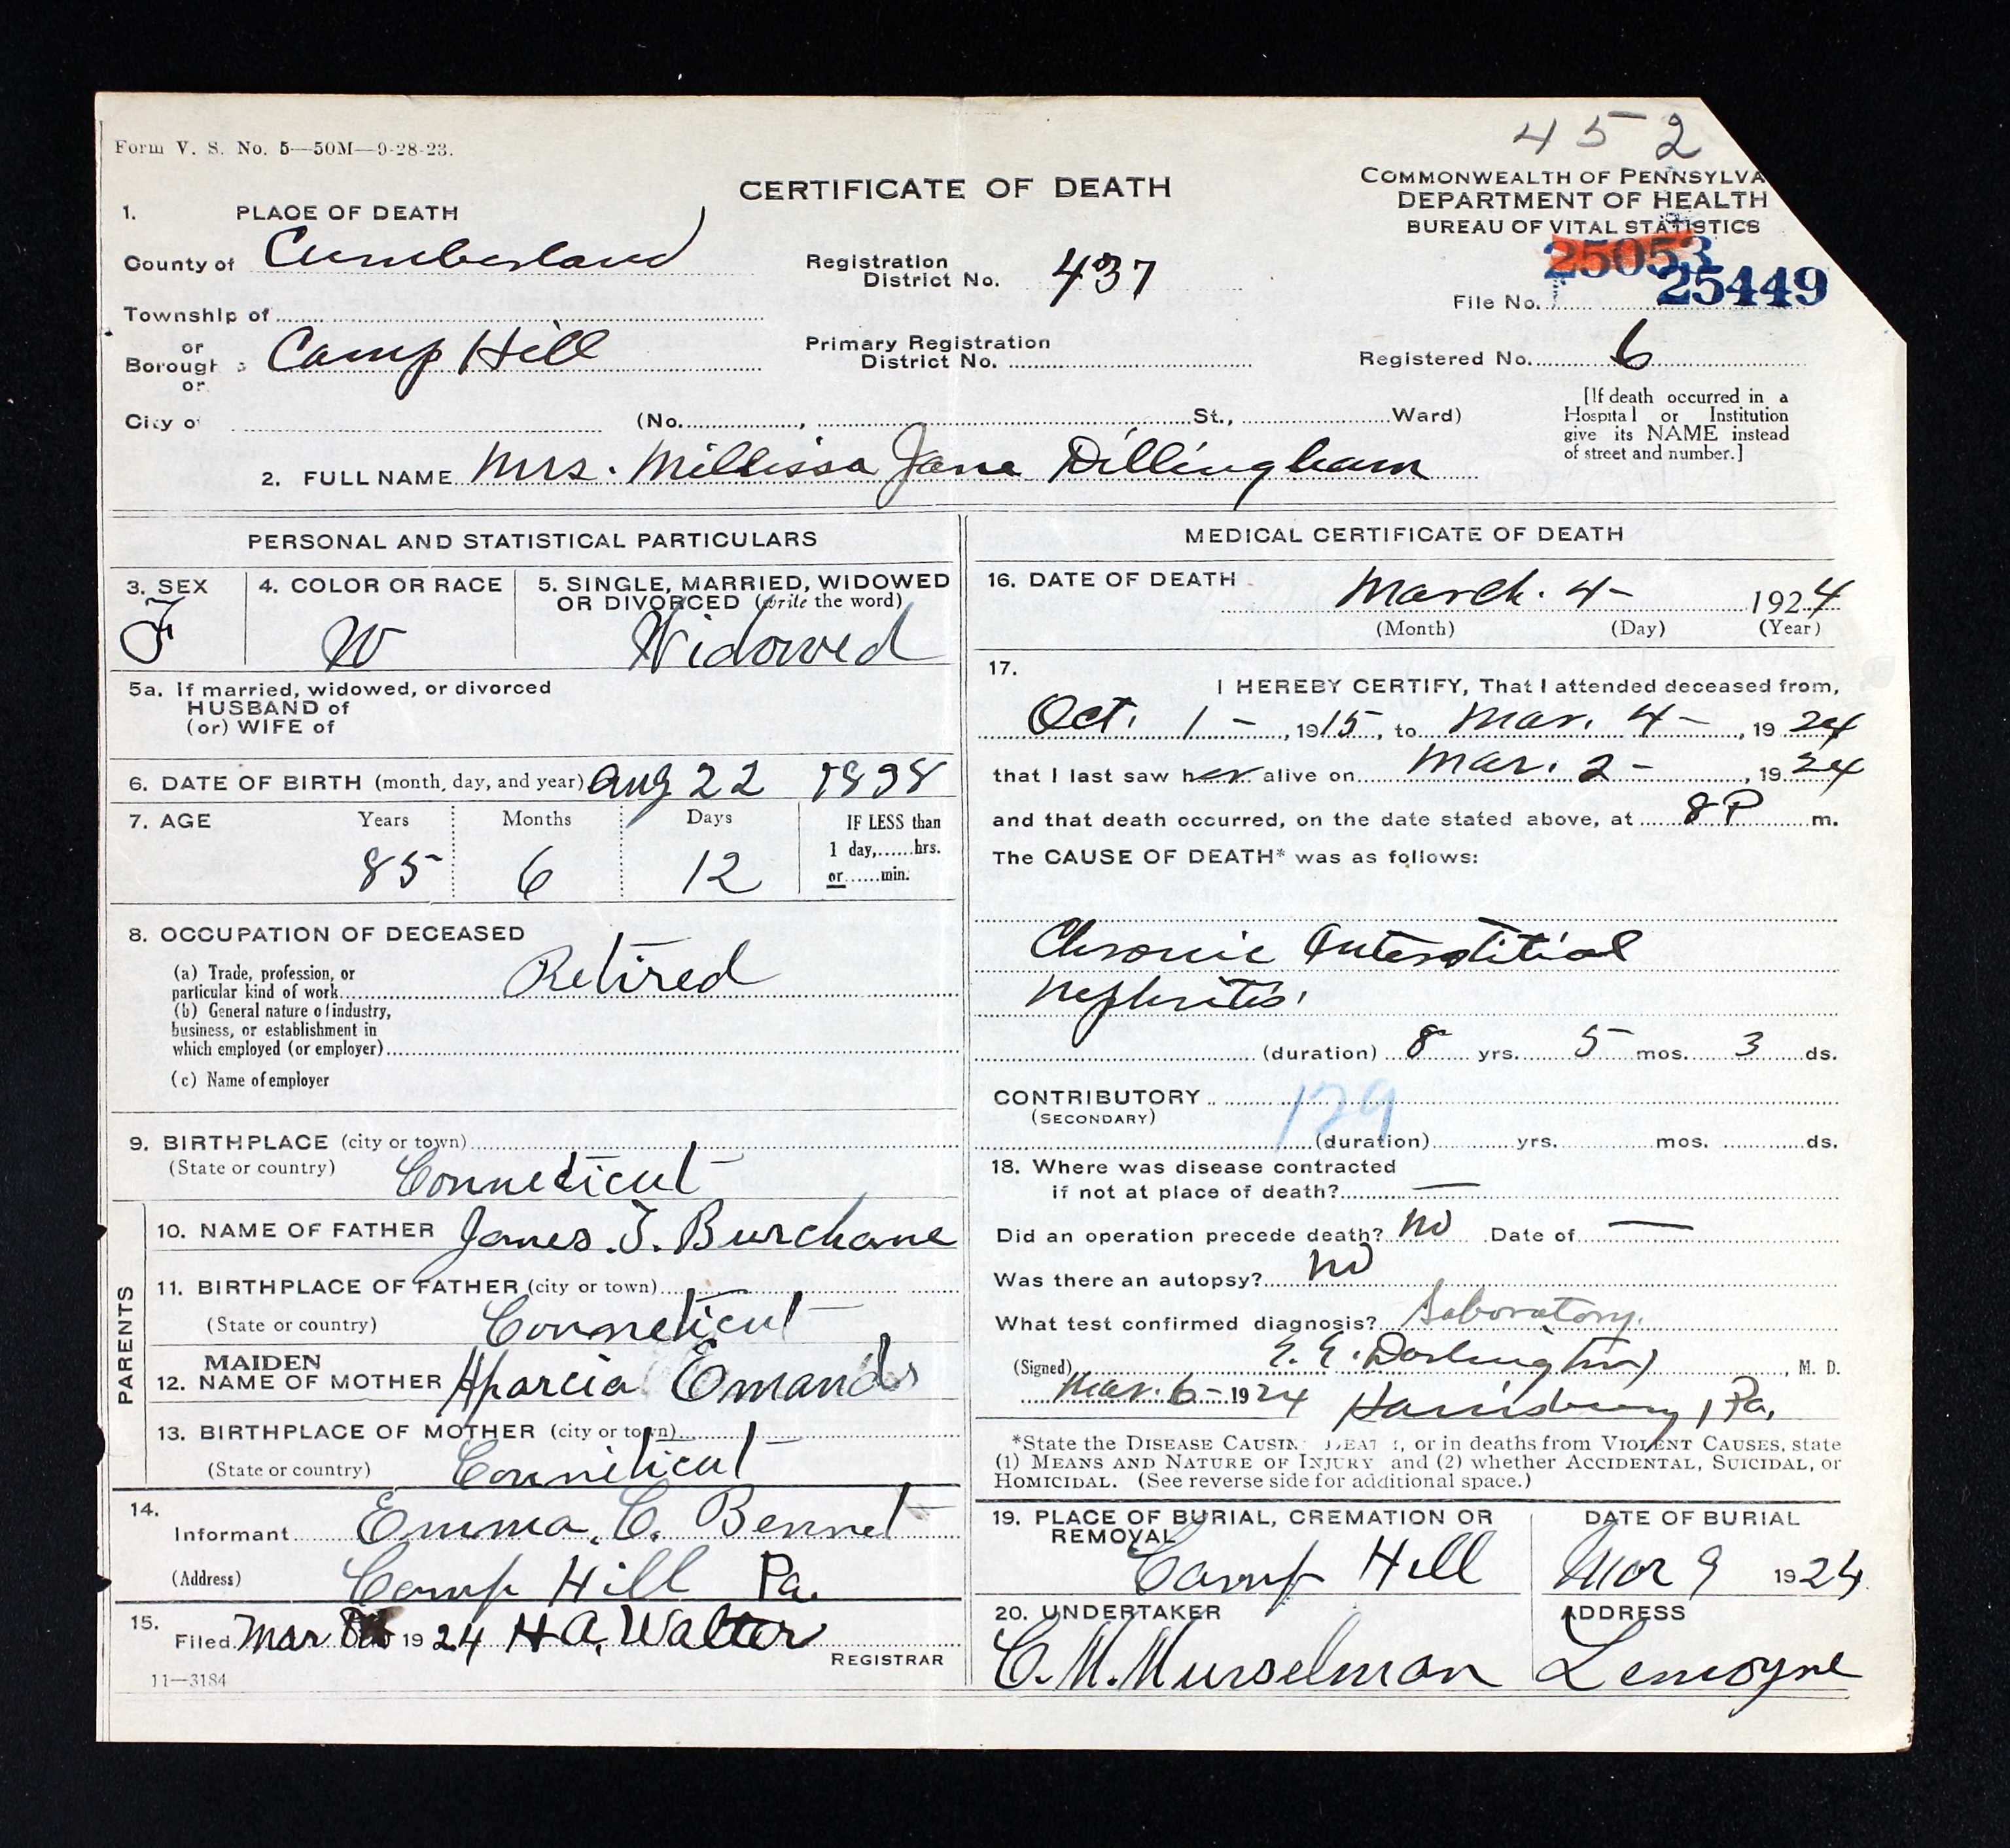 452
Form V. S. No. 5—50M—9-28-23.
CERTIFICATE OF DEATH
COMMONWEALTH OF PENNSYLVA
DEPARTMENT OF HEALTH
BUREAU OF VITAL STATISTICS
25053
File No. 25449
1. PLACE OF DEATH
County of Cumberland
Registration District No. 437
Township of
or Borough Camp Hill
Primary Registration District No.
Registered No. 6
or
City o (No. , St., Ward)
[If death occurred in a
Hospital or Institution
give its NAME instead
of street and number.]
2. FULL NAME Mrs. Millissa Jane Dillingham
PERSONAL AND STATISTICAL PARTICULARS
3. SEX F
4. COLOR OR RACE W
5. SINGLE, MARRIED, WIDOWED
OR DIVORCED (write the word)
Widowed
5a. If married, widowed, or divorced
HUSBAND of
(or) WIFE of
6. DATE OF BIRTH (month, day, and year) Aug 22 1838
7. AGE Years Months Days IF LESS than
1 day, hrs.
85 6 12 or min.
8. OCCUPATION OF DECEASED
(a) Trade, profession, or
particular kind of work Retired
(b) General nature of industry,
business, or establishment in
which employed (or employer)
(c) Name of employer
9. BIRTHPLACE (city or town)
(State or country) Conneticut
PARENTS
10. NAME OF FATHER James. T. Burchane
11. BIRTHPLACE OF FATHER (city or town)
(State or country) Conneticut
MAIDEN
12. NAME OF MOTHER Emands
13. BIRTHPLACE OF MOTHER (city or town)
(State or country) Conneticut
14.
Informant Emma. C. Bennet
(Address) Camp Hill Pa.
15.
Filed Mar 1924 H A. Walter
REGISTRAR
11—3184
MEDICAL CERTIFICATE OF DEATH
16. DATE OF DEATH March. 4- 1924
(Month) (Day) (Year)
17.
I HEREBY CERTIFY, That I attended deceased from,
Oct. 1-, 1915, to Mar. 4-, 1924
that I last saw her alive on Mar. 2-, 1924
and that death occurred, on the date stated above, at 8 P m.
The CAUSE OF DEATH* was as follows:
Chronic Interstitial
Nephritis.
(duration) 8 yrs. 5 mos. 3 ds.
CONTRIBUTORY 129
(SECONDARY)
(duration) yrs. mos. ds.
18. Where was disease contracted
if not at place of death? —
Did an operation precede death? No Date of —
Was there an autopsy? No
What test confirmed diagnosis? Laboratory.
(Signed) E. E. Darlington, M. D.
Mar. 6-1924 Harrisburg, Pa.
*State the DISEASE CAUSING DEATH, or in deaths from VIOLENT CAUSES, state
(1) MEANS AND NATURE OF INJURY and (2) whether ACCIDENTAL, SUICIDAL, or
HOMICIDAL. (See reverse side for additional space.)
19. PLACE OF BURIAL, CREMATION OR
REMOVAL
Camp Hill
DATE OF BURIAL
Mar 9 1924
20. UNDERTAKER
C. M. Musselman
ADDRESS
Lemoyne